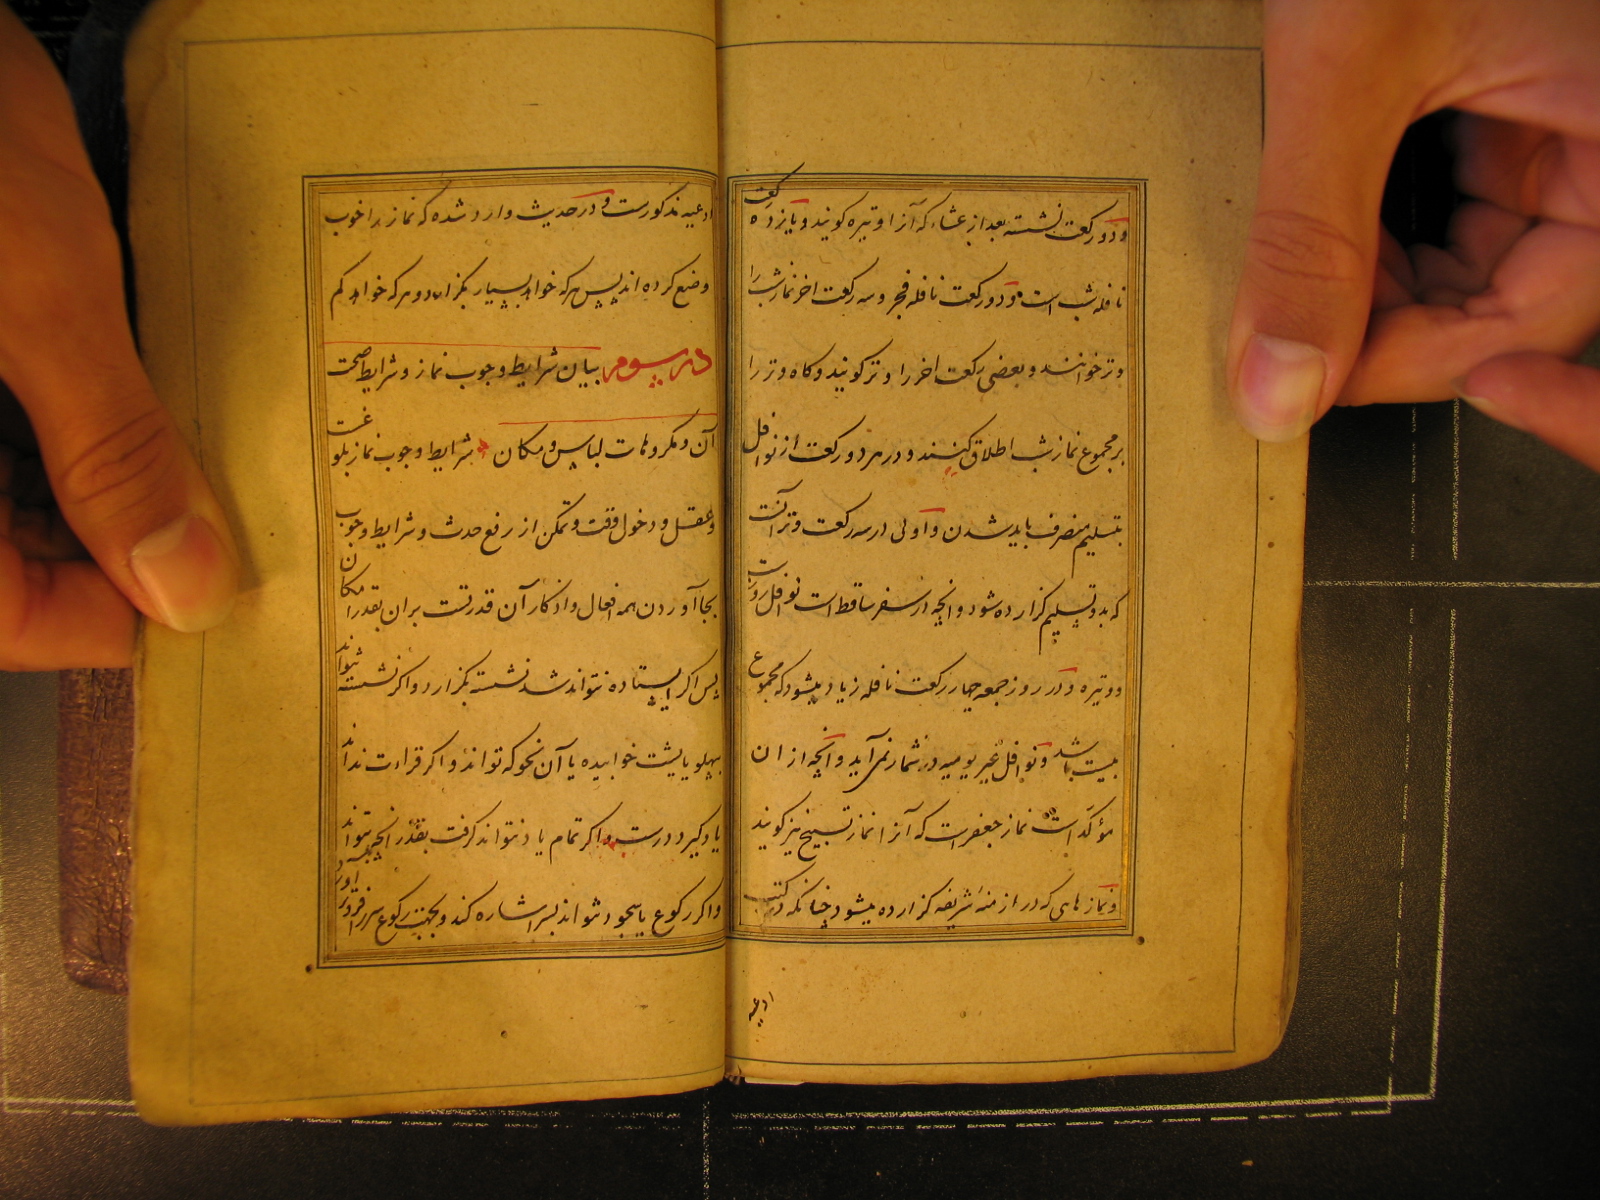 و دو رکعت نشسته بعد از عشاء که آنرا وتیره کویند و یازده رکعت
نافله شب است و دو رکعت نافله فجر و سه رکعت اخر نماز شب را
وتر خوانند و بعضی رکعت اخر را وتر کویند و کاه وتر را
بر مجموع نماز شب اطلاق کنند و در هر دو رکعت از نوافل
بتسلیم منصرف باید شدن و اولی در سه رکعت وتر آنست
که بدو تسلیم کزارده شود و انچه در سفر ساقط است نوافل روزست
و وتیره و در روز جمعه چهار رکعت نافله زیاد میشود که مجموع
بیست باشد و نوافل غیر یومیه در شمار نمی آید و انچه از ان
مؤکد است نماز جعفرست که آنرا نماز تسبیح نیز کویند
و نماز های که در ازمنه شریفه کزارده میشود چنانکه در کتب
ادعیه
ادعیه مذکورست و در حدیث وارد شده که نماز را خوب
وضع کرده اند پس هر که خواهد بسیار بکزارد و هر که خواهد کم
در سوم بیان شرایط وجوب نماز و شرایط صحت
آن و مکروهات لباس و مکان شرایط وجوب نماز بلوغست
و عقل و دخول وقت و تمکن از رفع حدث و شرایط وجوب
بجا آوردن همه افعال و اذکار آن قدرتست بران بقدر امکان
پس اکر ایستاده نتواند شد نشسته بکزارد و اکر نشسته نتواند
بپهلو یا پشت خوابیده یا آن نحو که تواند و اکر قراءت نداند
یاد کیرد درست و اکر تمام یاد نتواند کرفت بقدر انچه تواند
و اکر رکوع یا سجود نتواند بسر اشاره کند و بجهت رکوع سر فرود